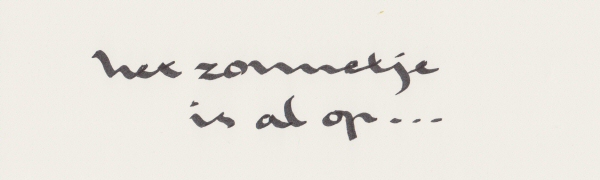 het zonnetje
is al op...